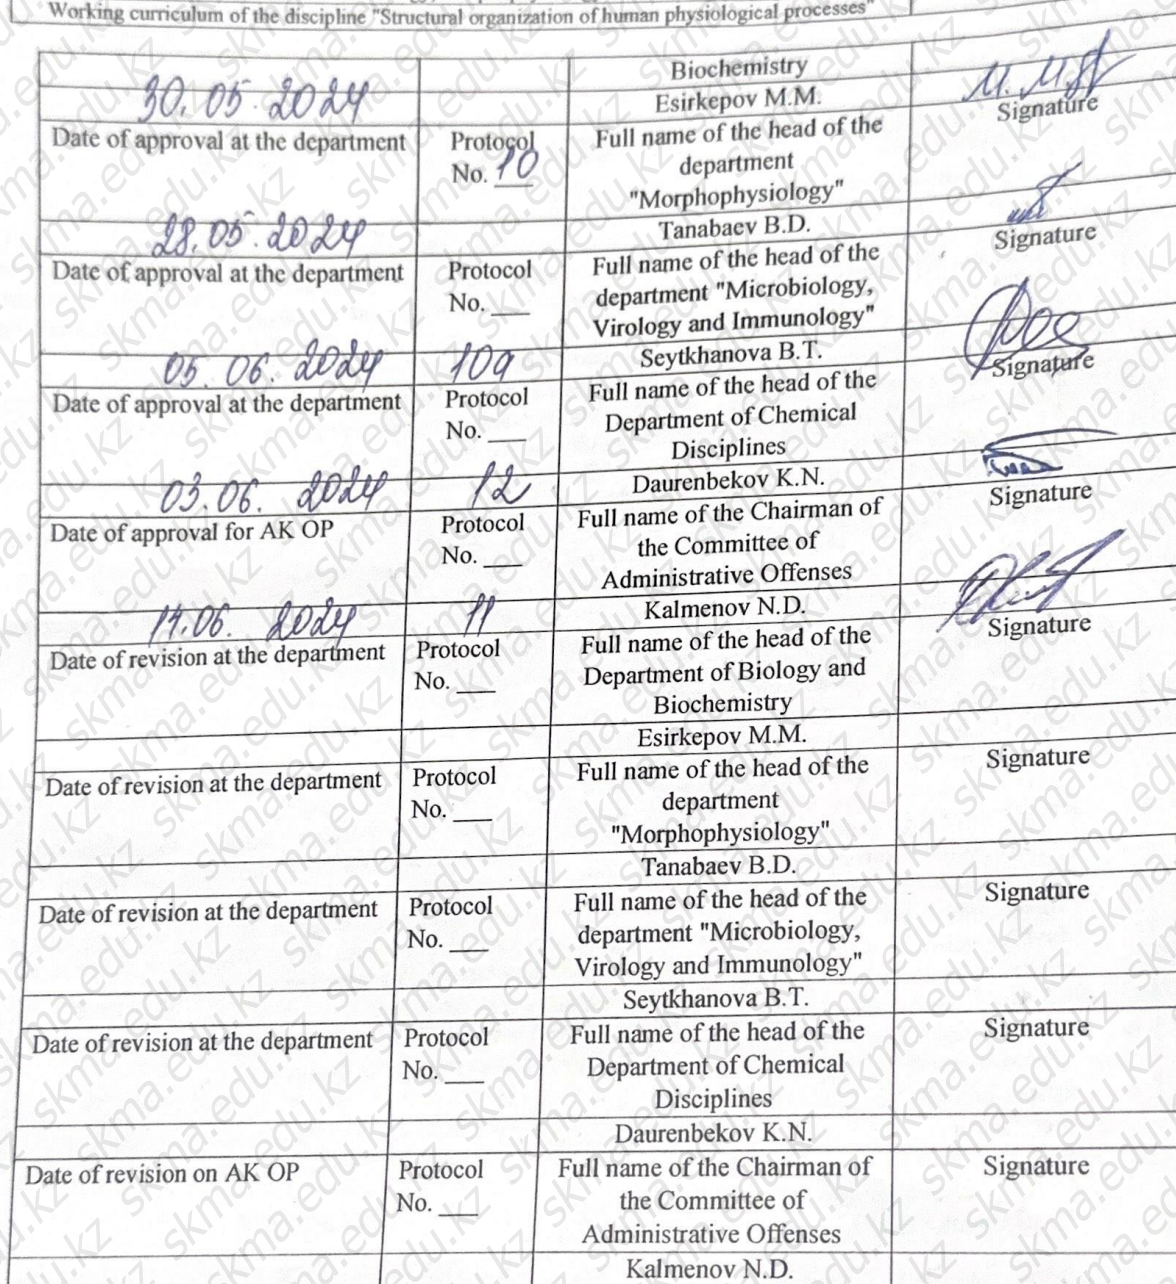 Working curriculum of the discipline "Structural organization of human physiological processes"
Biochemistry
30.05.2024 Esirkepov M.M. Signature
Date of approval at the department Protocol No. 10 Full name of the head of the
department
"Morphophysiology"
28.05.2024 Tanabaev B.D. Signature
Date of approval at the department Protocol Full name of the head of the
No. ___ department "Microbiology,
Virology and Immunology"
05.06.2024 10a Seytkhanova B.T. Signature
Date of approval at the department Protocol Full name of the head of the
No. ___ Department of Chemical
Disciplines
03.06.2024 12 Daurenbekov K.N. Signature
Date of approval for AK OP Protocol Full name of the Chairman of
No. ___ the Committee of
Administrative Offenses
14.06.2024 11 Kalmenov N.D. Signature
Date of revision at the department Protocol Full name of the head of the
No. ___ Department of Biology and
Biochemistry
Esirkepov M.M.
Date of revision at the department Protocol Full name of the head of the Signature
No. ___ department
"Morphophysiology"
Tanabaev B.D.
Date of revision at the department Protocol Full name of the head of the Signature
No. ___ department "Microbiology,
Virology and Immunology"
Seytkhanova B.T.
Date of revision at the department Protocol Full name of the head of the Signature
No. ___ Department of Chemical
Disciplines
Daurenbekov K.N.
Date of revision on AK OP Protocol Full name of the Chairman of Signature
No. ___ the Committee of
Administrative Offenses
Kalmenov N.D.
skma.edu.kz